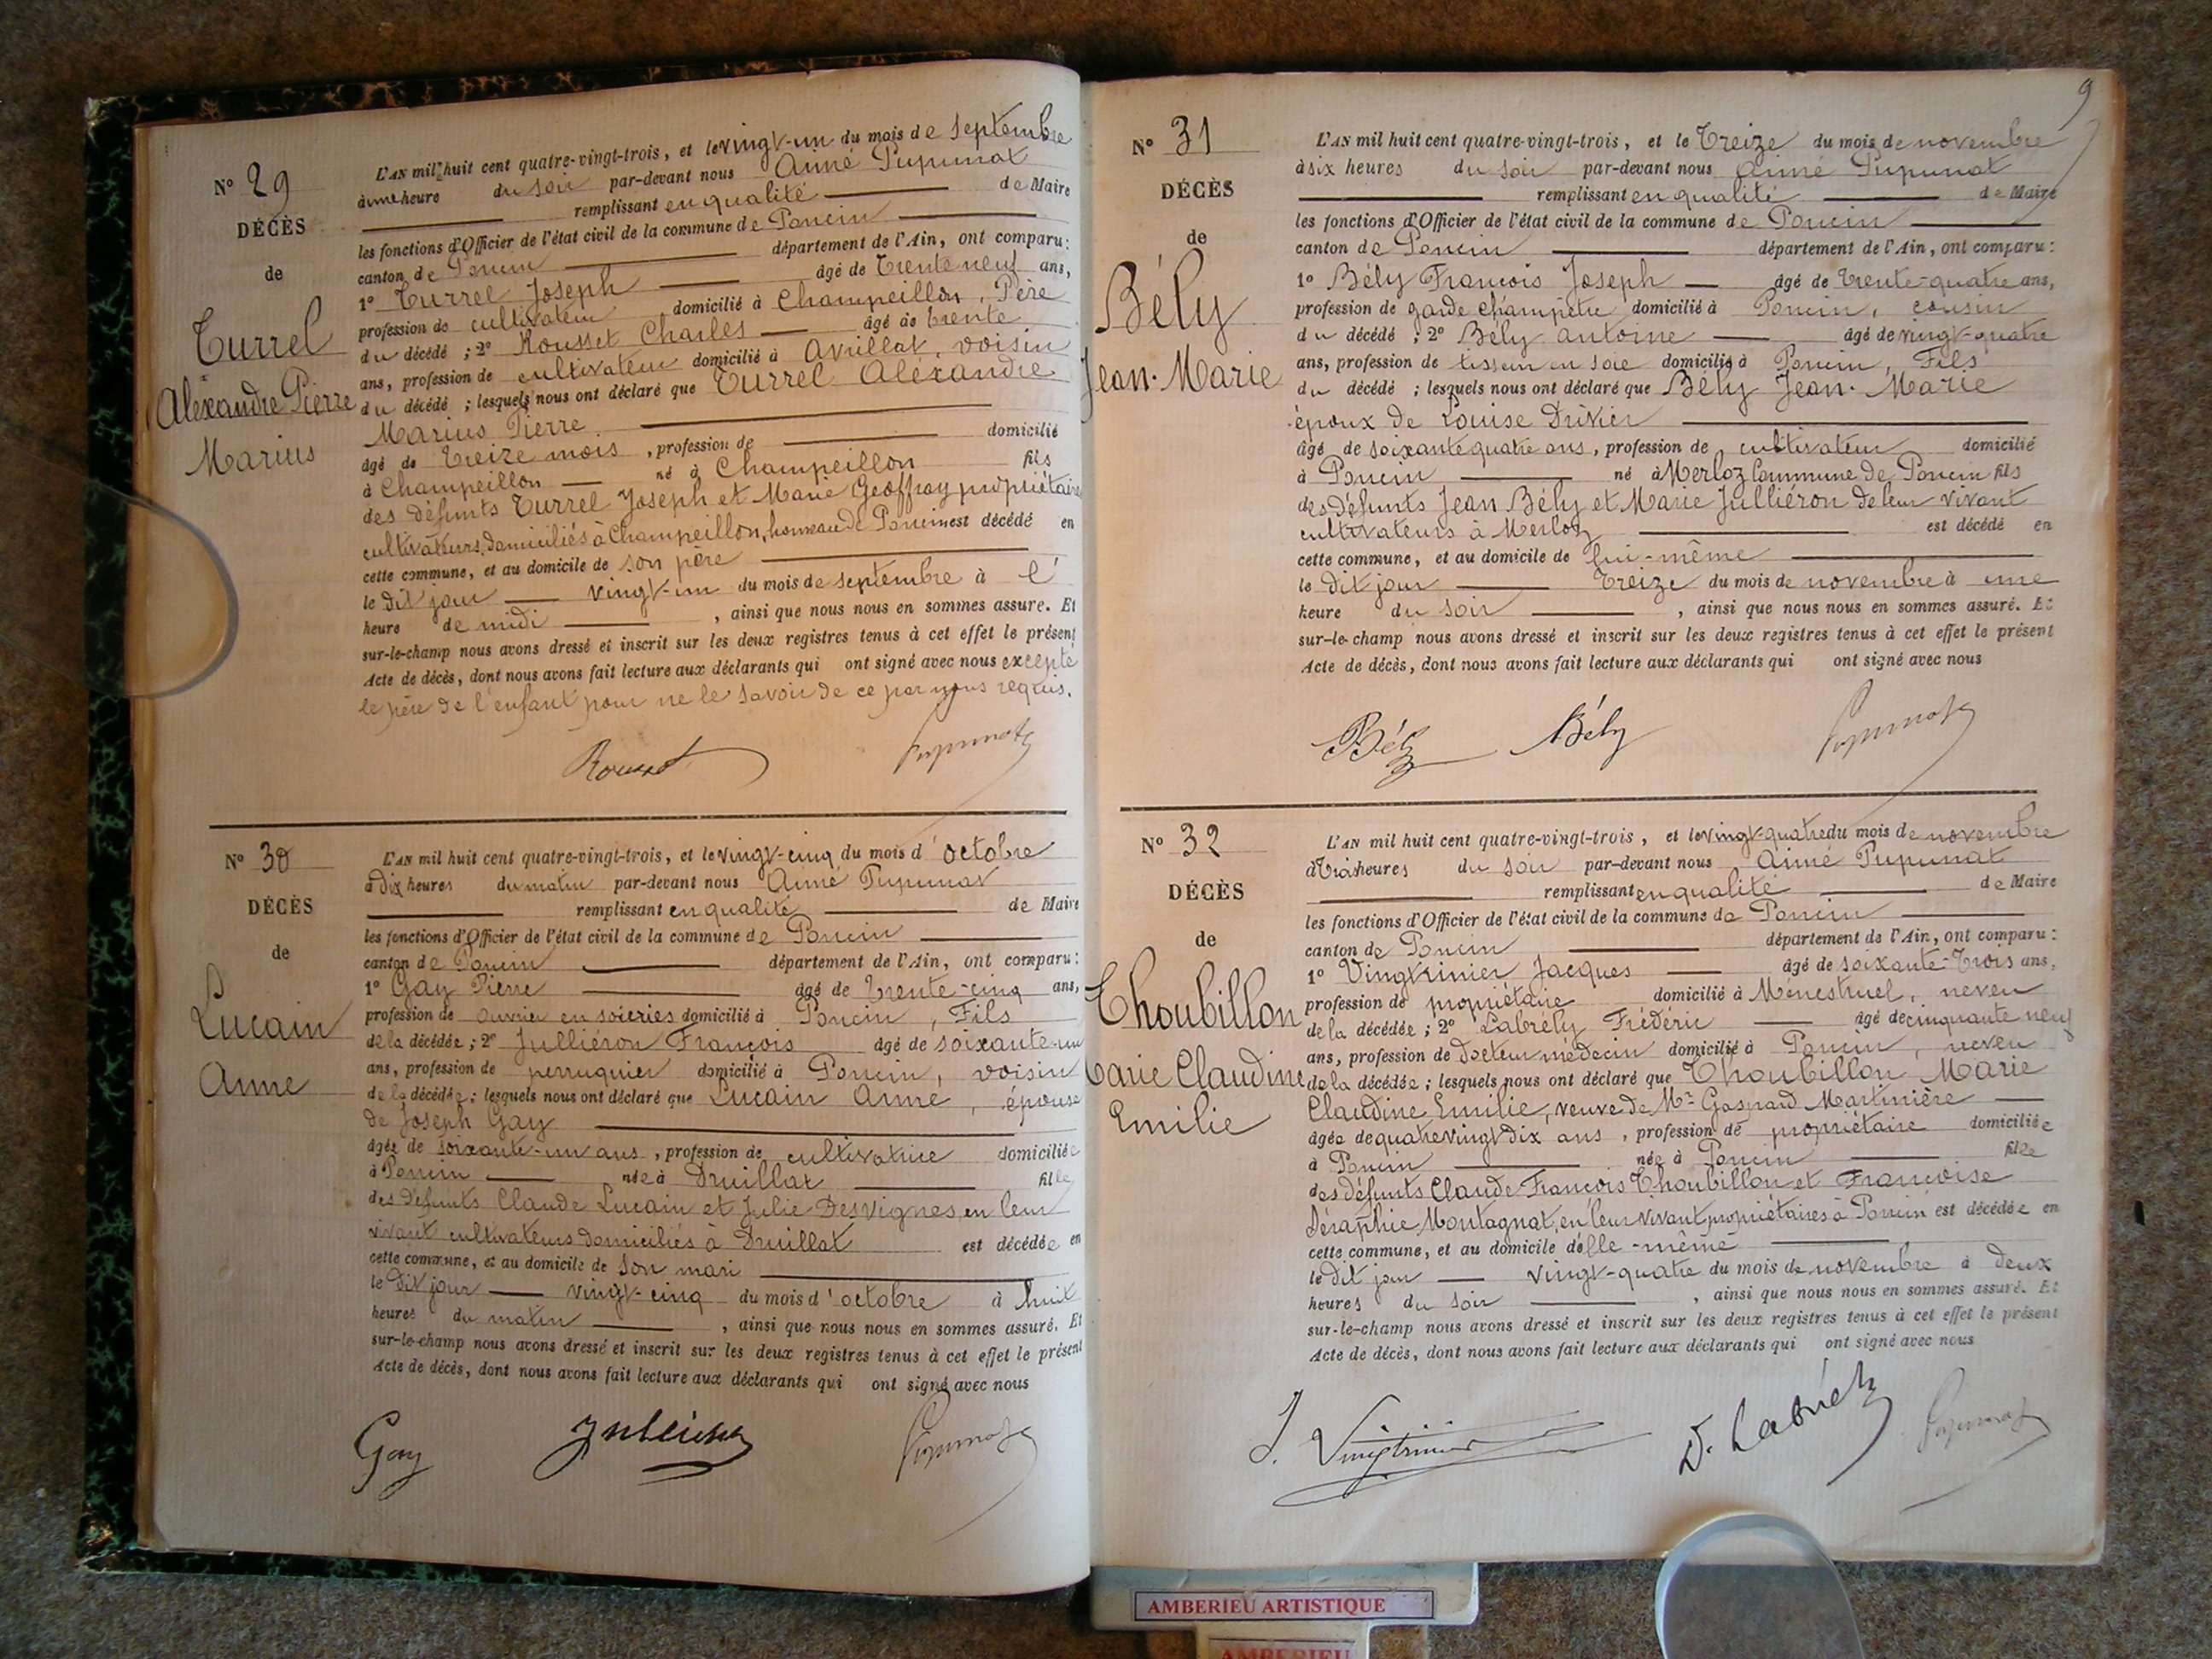 Nº 29
DÉCÈS
de
Turrel
Alexandre Pierre
Marius
L'AN mil huit cent quatre-vingt-trois, et le vingt-un du mois de septembre
à une heure du soir par-devant nous Aimé Pupunat
remplissant en qualité de Maire
les fonctions d'Officier de l'état civil de la commune de Poncin
canton de Poncin département de l'Ain, ont comparu:
1º Turrel Joseph âgé de trente neuf ans,
profession de cultivateur domicilié à Champeillon, Père
du décédé; 2º Rousset Charles âgé de trente
ans, profession de cultivateur domicilié à Avrillat, voisin
du décédé; lesquels nous ont déclaré que Turrel Aléxandre
Marius Pierre
âgé de treize mois, profession de domicilié
à Champeillon né à Champeillon fils
des défunts Turrel Joseph et Marie Geoffray propriétaires
cultivateurs domiciliés à Champeillon, hameau de Poncin est décédé en
cette commune, et au domicile de son père
le dit jour vingt-un du mois de septembre à l'
heure de midi, ainsi que nous nous en sommes assuré. Et
sur-le-champ nous avons dressé et inscrit sur les deux registres tenus à cet effet le présent
Acte de décès, dont nous avons fait lecture aux déclarants qui ont signé avec nous excepté
le père de l'enfant pour ne le savoir de ce par nous requis.
Rousset Pupunat
Nº 30
DÉCÈS
de
Lucain
Anne
L'AN mil huit cent quatre-vingt-trois, et le vingt-cinq du mois d'octobre
à dix heures du matin par-devant nous Aimé Pupunat
remplissant en qualité de Maire
les fonctions d'Officier de l'état civil de la commune de Poncin
canton de Poncin département de l'Ain, ont comparu:
1º Gay Pierre âgé de trente-cinq ans,
profession de ouvrier en soieries domicilié à Poncin, Fils
de la décédée; 2º Julliéron François âgé de soixante-un
ans, profession de perruquier domicilié à Poncin, voisin
de la décédée; lesquels nous ont déclaré que Lucain Anne, épouse
de Joseph Gay
âgée de soixante-un ans, profession de cultivatrice domiciliée
à Poncin née à Druillat fille
des défunts Claude Lucain et Julie Desvignes, en leur
vivant cultivateurs domiciliés à Druillat est décédée en
cette commune, et au domicile de son mari
le dit jour vingt-cinq du mois d'octobre à huit
heures du matin, ainsi que nous nous en sommes assuré. Et
sur-le-champ nous avons dressé et inscrit sur les deux registres tenus à cet effet le présent
Acte de décès, dont nous avons fait lecture aux déclarants qui ont signé avec nous
Gay Pupunat
9
Nº 31
DÉCÈS
de
Bély
Jean-Marie
L'AN mil huit cent quatre-vingt-trois, et le treize du mois de novembre
à six heures du soir par-devant nous Aimé Pupunat
remplissant en qualité de Maire
les fonctions d'Officier de l'état civil de la commune de Poncin
canton de Poncin département de l'Ain, ont comparu:
1º Bély François Joseph âgé de trente-quatre ans,
profession de garde champêtre domicilié à Poncin, cousin
du décédé; 2º Bély Antoine âgé de vingt-quatre
ans, profession de tisseur en soie domicilié à Poncin, Fils
du décédé; lesquels nous ont déclaré que Bély Jean-Marie
époux de Louise Drivier
âgé de soixante quatre ans, profession de cultivateur domicilié
à Poncin né à Merloz Commune de Poncin fils
des défunts Jean Bély et Marie Julliéron de leur vivant
cultivateurs à Merloz est décédé en
cette commune, et au domicile de lui-même
le dit jour treize du mois de novembre à une
heure du soir, ainsi que nous nous en sommes assuré. Et
sur-le-champ nous avons dressé et inscrit sur les deux registres tenus à cet effet le présent
Acte de décès, dont nous avons fait lecture aux déclarants qui ont signé avec nous
Bély Bély Pupunat
Nº 32
DÉCÈS
de
Thoubillon
Marie Claudine
Emilie
L'AN mil huit cent quatre-vingt-trois, et le vingt-quatre du mois de novembre
à trois heures du soir par-devant nous Aimé Pupunat
remplissant en qualité de Maire
les fonctions d'Officier de l'état civil de la commune de Poncin
canton de Poncin département de l'Ain, ont comparu:
1º Vingtrinier Jacques âgé de soixante-trois ans,
profession de propriétaire domicilié à Ménestruel, neveu
de la décédée; 2º Labrély Frédéric âgé de cinquante neuf
ans, profession de Docteur médecin domicilié à Poncin, neveu
de la décédée; lesquels nous ont déclaré que Thoubillon Marie
Claudine Emilie, veuve de Mr Gaspard Martinière
âgée de quatre vingt dix ans, profession de propriétaire domiciliée
à Poncin née à Poncin fille
des défunts Claude François Thoubillon et Françoise
Séraphie Montagnat, en leur vivant propriétaires à Poncin est décédée en
cette commune, et au domicile d'elle-même
le dit jour vingt-quatre du mois de novembre à deux
heures du soir, ainsi que nous nous en sommes assuré. Et
sur-le-champ nous avons dressé et inscrit sur les deux registres tenus à cet effet le présent
Acte de décès, dont nous avons fait lecture aux déclarants qui ont signé avec nous
J. Vingtrinier D. Labrély Pupunat
AMBERIEU ARTISTIQUE
AMBERIEU